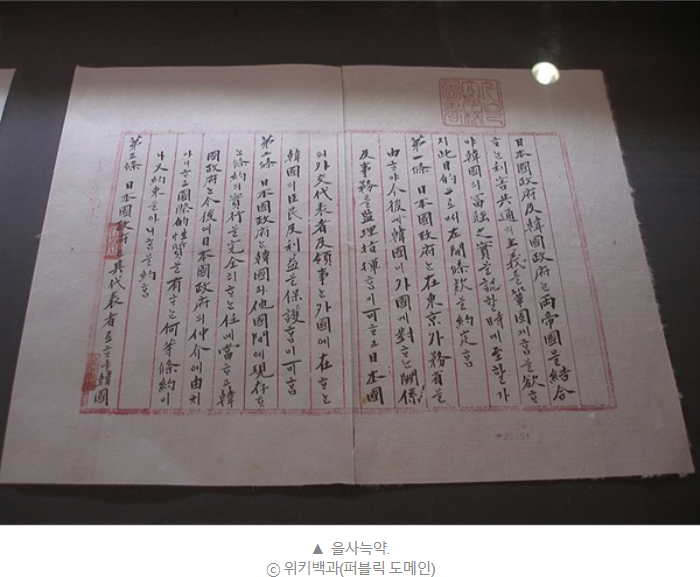 日本國政府及韓國政府는兩帝國을結合
ᄒᆞ는利害共通의主義를鞏固케홈을欲ᄒᆞ
야韓國의富强之實을認ᄒᆞᆯ時에至ᄒᆞᆯ가
지此目的으로써左開條款을約定홈
第一條 日本國政府는在東京外務省을
由ᄒᆞ야今後에韓國이外國에對ᄒᆞ는關係
及事務를監理指揮홈이可ᄒᆞ고日本國
의外交代表者及領事는外國에在ᄒᆞ는
韓國의臣民及利益을保護홈이可홈
第二條 日本國政府는韓國과他國間에現存ᄒᆞ
는條約의實行을完全히ᄒᆞ는任에當ᄒᆞ고韓
國政府는今後에日本國政府의仲介에由치
아니ᄒᆞ고國際的性質을有ᄒᆞ는何等條約이
나又約束을아니홈을約홈
第三條 日本國政府는其代表者로ᄒᆞ야韓國
▲ 을사늑약.
ⓒ 위키백과(퍼블릭 도메인)